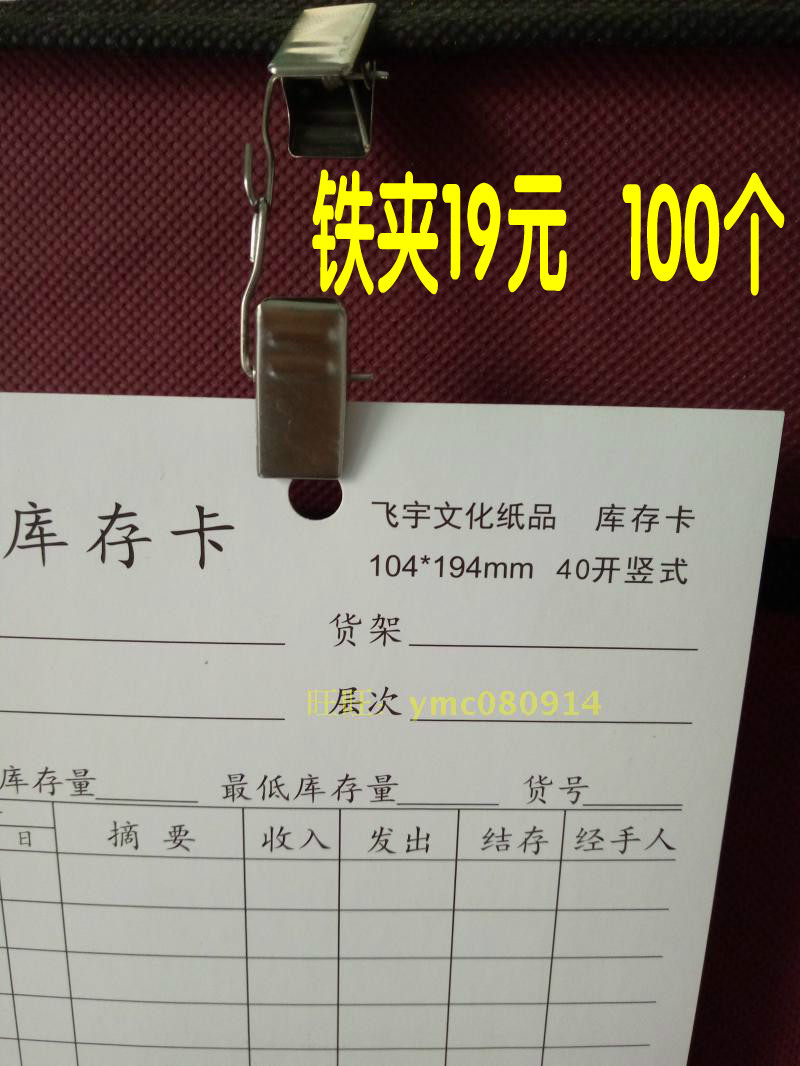 铁夹19元 100个
飞宇文化纸品 库存卡
库存卡
104*194mm 40开竖式
货架
层次
旺旺：ymc080914
库存量 最低库存量 货号
日 摘要 收入 发出 结存 经手人